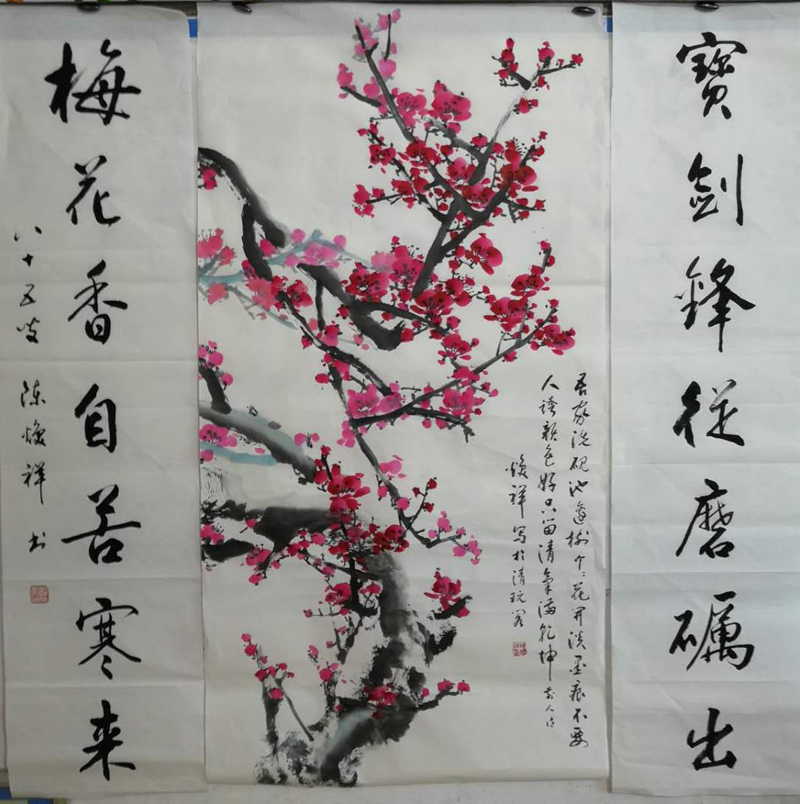 寶劍鋒從磨礪出
吾家洗硯池邊樹个々花开淡墨痕不要
人誇颜色好只留清氣滿乾坤
焕祥写於清玩阁
梅花香自苦寒来
八十五叟 陈焕祥 书